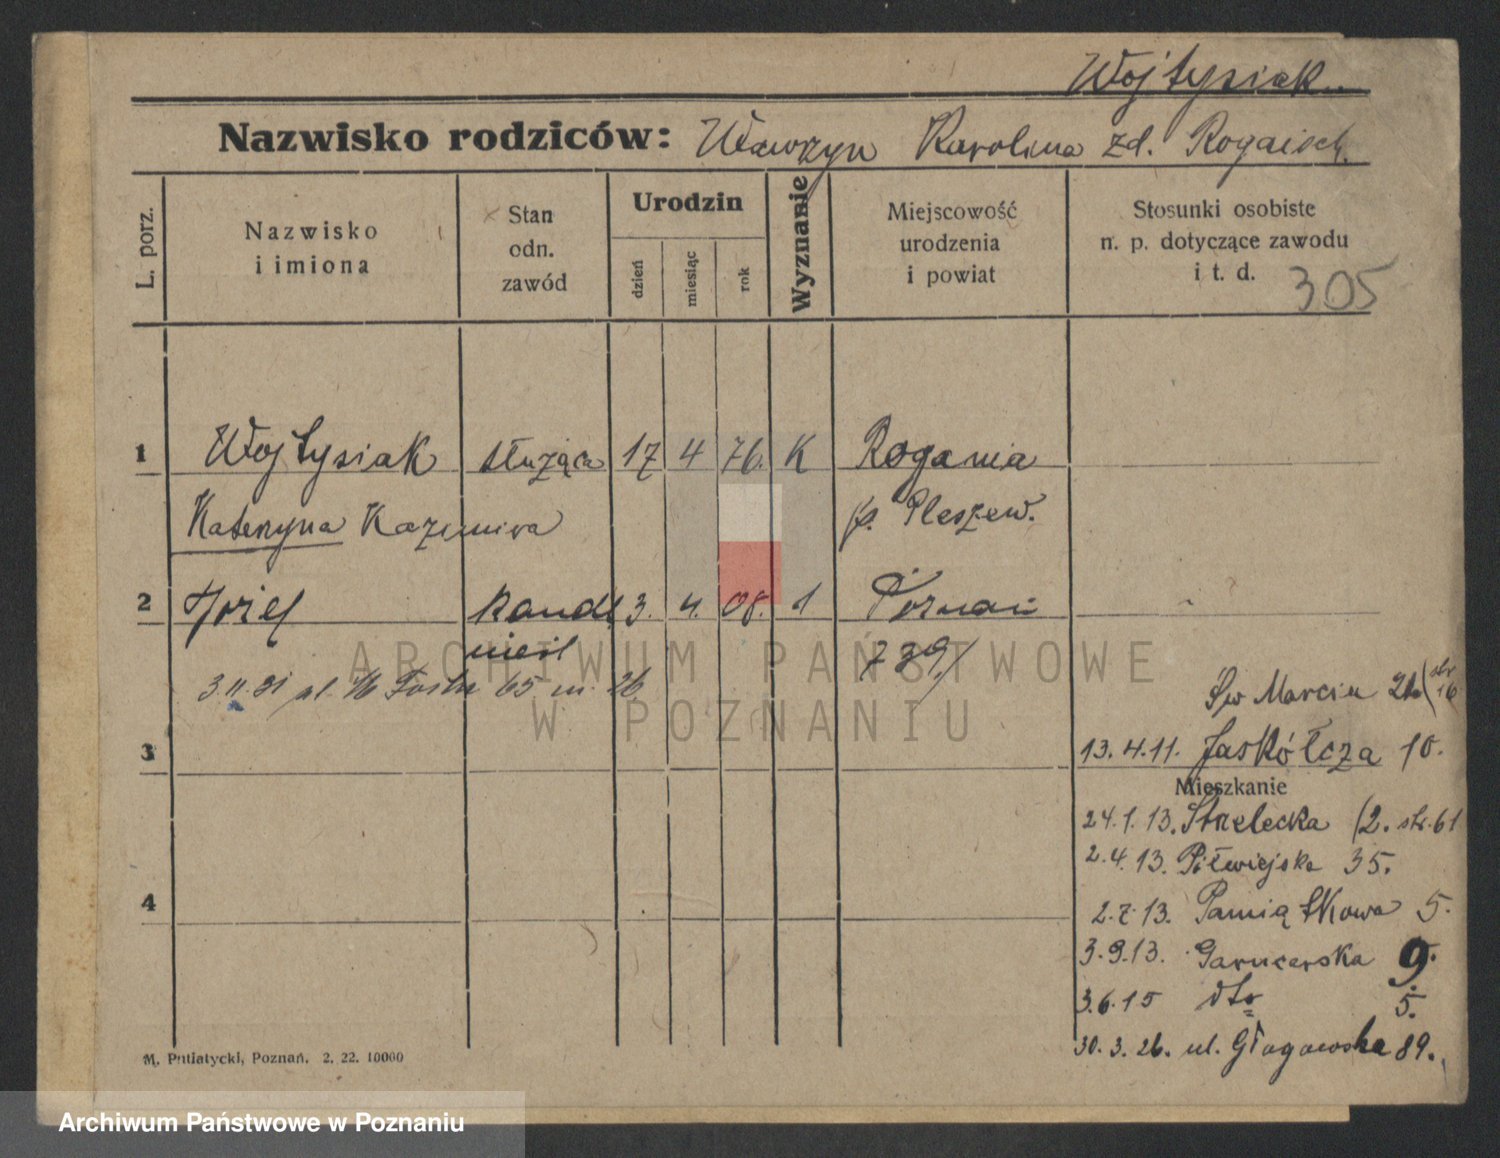 Wojtysiak
Nazwisko rodziców: Wawrzyn Karolina zd.
L. porz.
Nazwisko
i imiona
Stan
odn.
zawód
Urodzin
dzień
miesiąc
rok
Wyznanie
Miejscowość
urodzenia
i powiat
Stosunki osobiste
n. p. dotyczące zawodu
i t. d.
305
1 Wojtysiak służąca 17 4 76. K
Katarzyna Kazimira p. Pleszew.
2 Józef 3. 4. 08. Poznań
739/
65 m. 26
ARCHIWUM PAŃSTWOWE
W POZNANIU
Św Marcin
3 13.4.11. Jaskółcza 10.
Mieszkanie
24.1.13. Strzelecka str. 61
2.4.13. Półwiejska 35.
4 2.7.13. Pamiątkowa 5.
3.9.13. Garncarska 9.
3.6.15 dto 5.
30.3.26. ul. Głogowska 89.
M. Putiatycki, Poznań. 2. 22. 10000
Archiwum Państwowe w Poznaniu